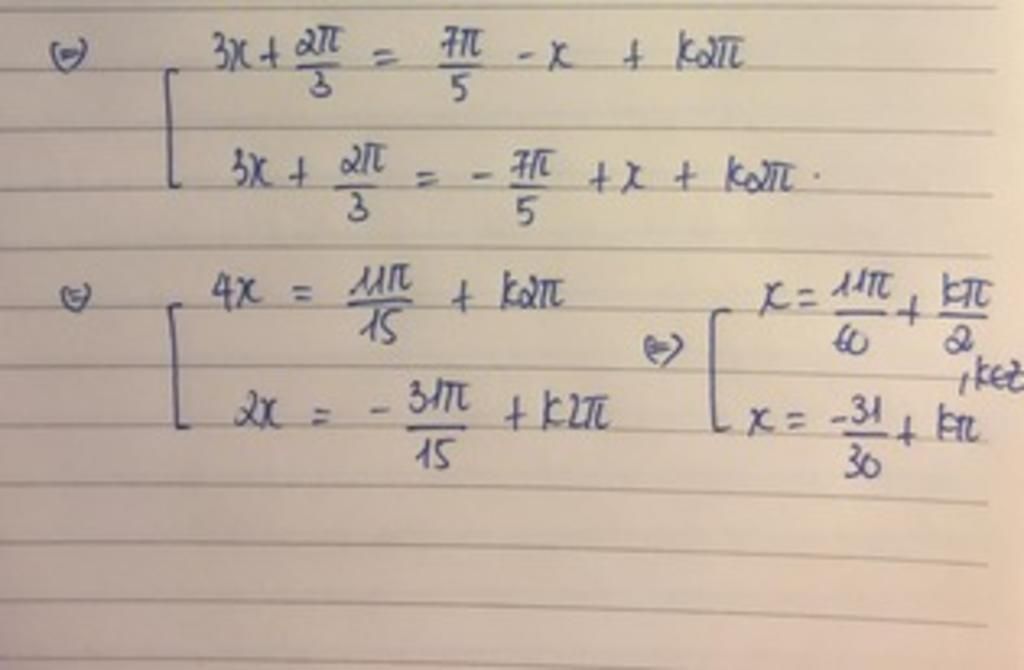 (=) [ 3x + 2π/3 = 7π/5 - x + k2π
3x + 2π/3 = - 7π/5 + x + k2π .
(=) [ 4x = 11π/15 + k2π (=) [ x = 11π/60 + kπ/2
2x = - 31π/15 + k2π x = -31/30 + kπ , k∈Z